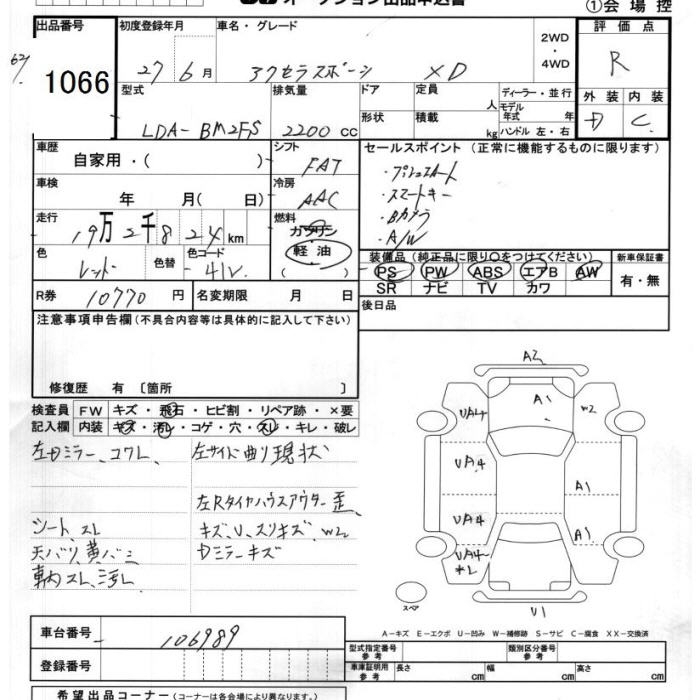 オークション出品申込書
①会場控
出品番号 初度登録年月 車名・グレード 2WD・4WD 評価点
1066 27 6月 アクセラスポーツ XD R
型式 排気量 ドア 定員 人 ディーラー・並行 外装 内装
モデル年式 年
LDA-BM2FS 2200cc 形状 積載 kg ハンドル 左・右 D C
車歴 シフト セールスポイント (正常に機能するものに限ります)
自家用・( ) FAT ・プッシュスタート
車検 冷房 ・スマートキー
年 月( 日) AAC ・Bカメラ
走行 燃料 ・A/W
19万2千824km ガソリン
軽油
色 色替 色コード 装備品 (純正品に限り〇をつけてください) 新車保証書
レッド 41V ( ) PS PW ABS エアB AW 有・無
SR ナビ TV カワ
R券 10770円 名変期限 月 日 後日品
注意事項申告欄 (不具合内容等は具体的に記入して下さい)
修復歴 有 [箇所 ]
検査員 FW キズ・飛石・ヒビ割・リペア跡・×要
記入欄 内装 キズ・汚レ・コゲ・穴・スレ・キレ・破レ
左ドミラー、コワレ 左サイド曲り現状
左Rタイヤハウスアウター歪
シート、スレ キズ、U、スリキズ、W2
天バリ、黄バミ Dミラーキズ
車内スレ、汚レ
A2
A1
UA4 W2
UA4
A1
UA4
A1
UA4
スペア
U1
A-キズ E-エクボ U-凹み W-補修跡 S-サビ C-腐食 XX-交換済
車台番号 106989
型式指定番号 参考 類別区分番号 参考
登録番号
車庫証明用 参考 長さ cm 幅 cm 高さ cm
希望出品コーナー (コーナーは各会場により異なります。)